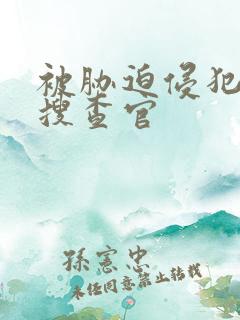 被胁迫侵犯
搜查官
孫憲忠
未任同意禁止转载